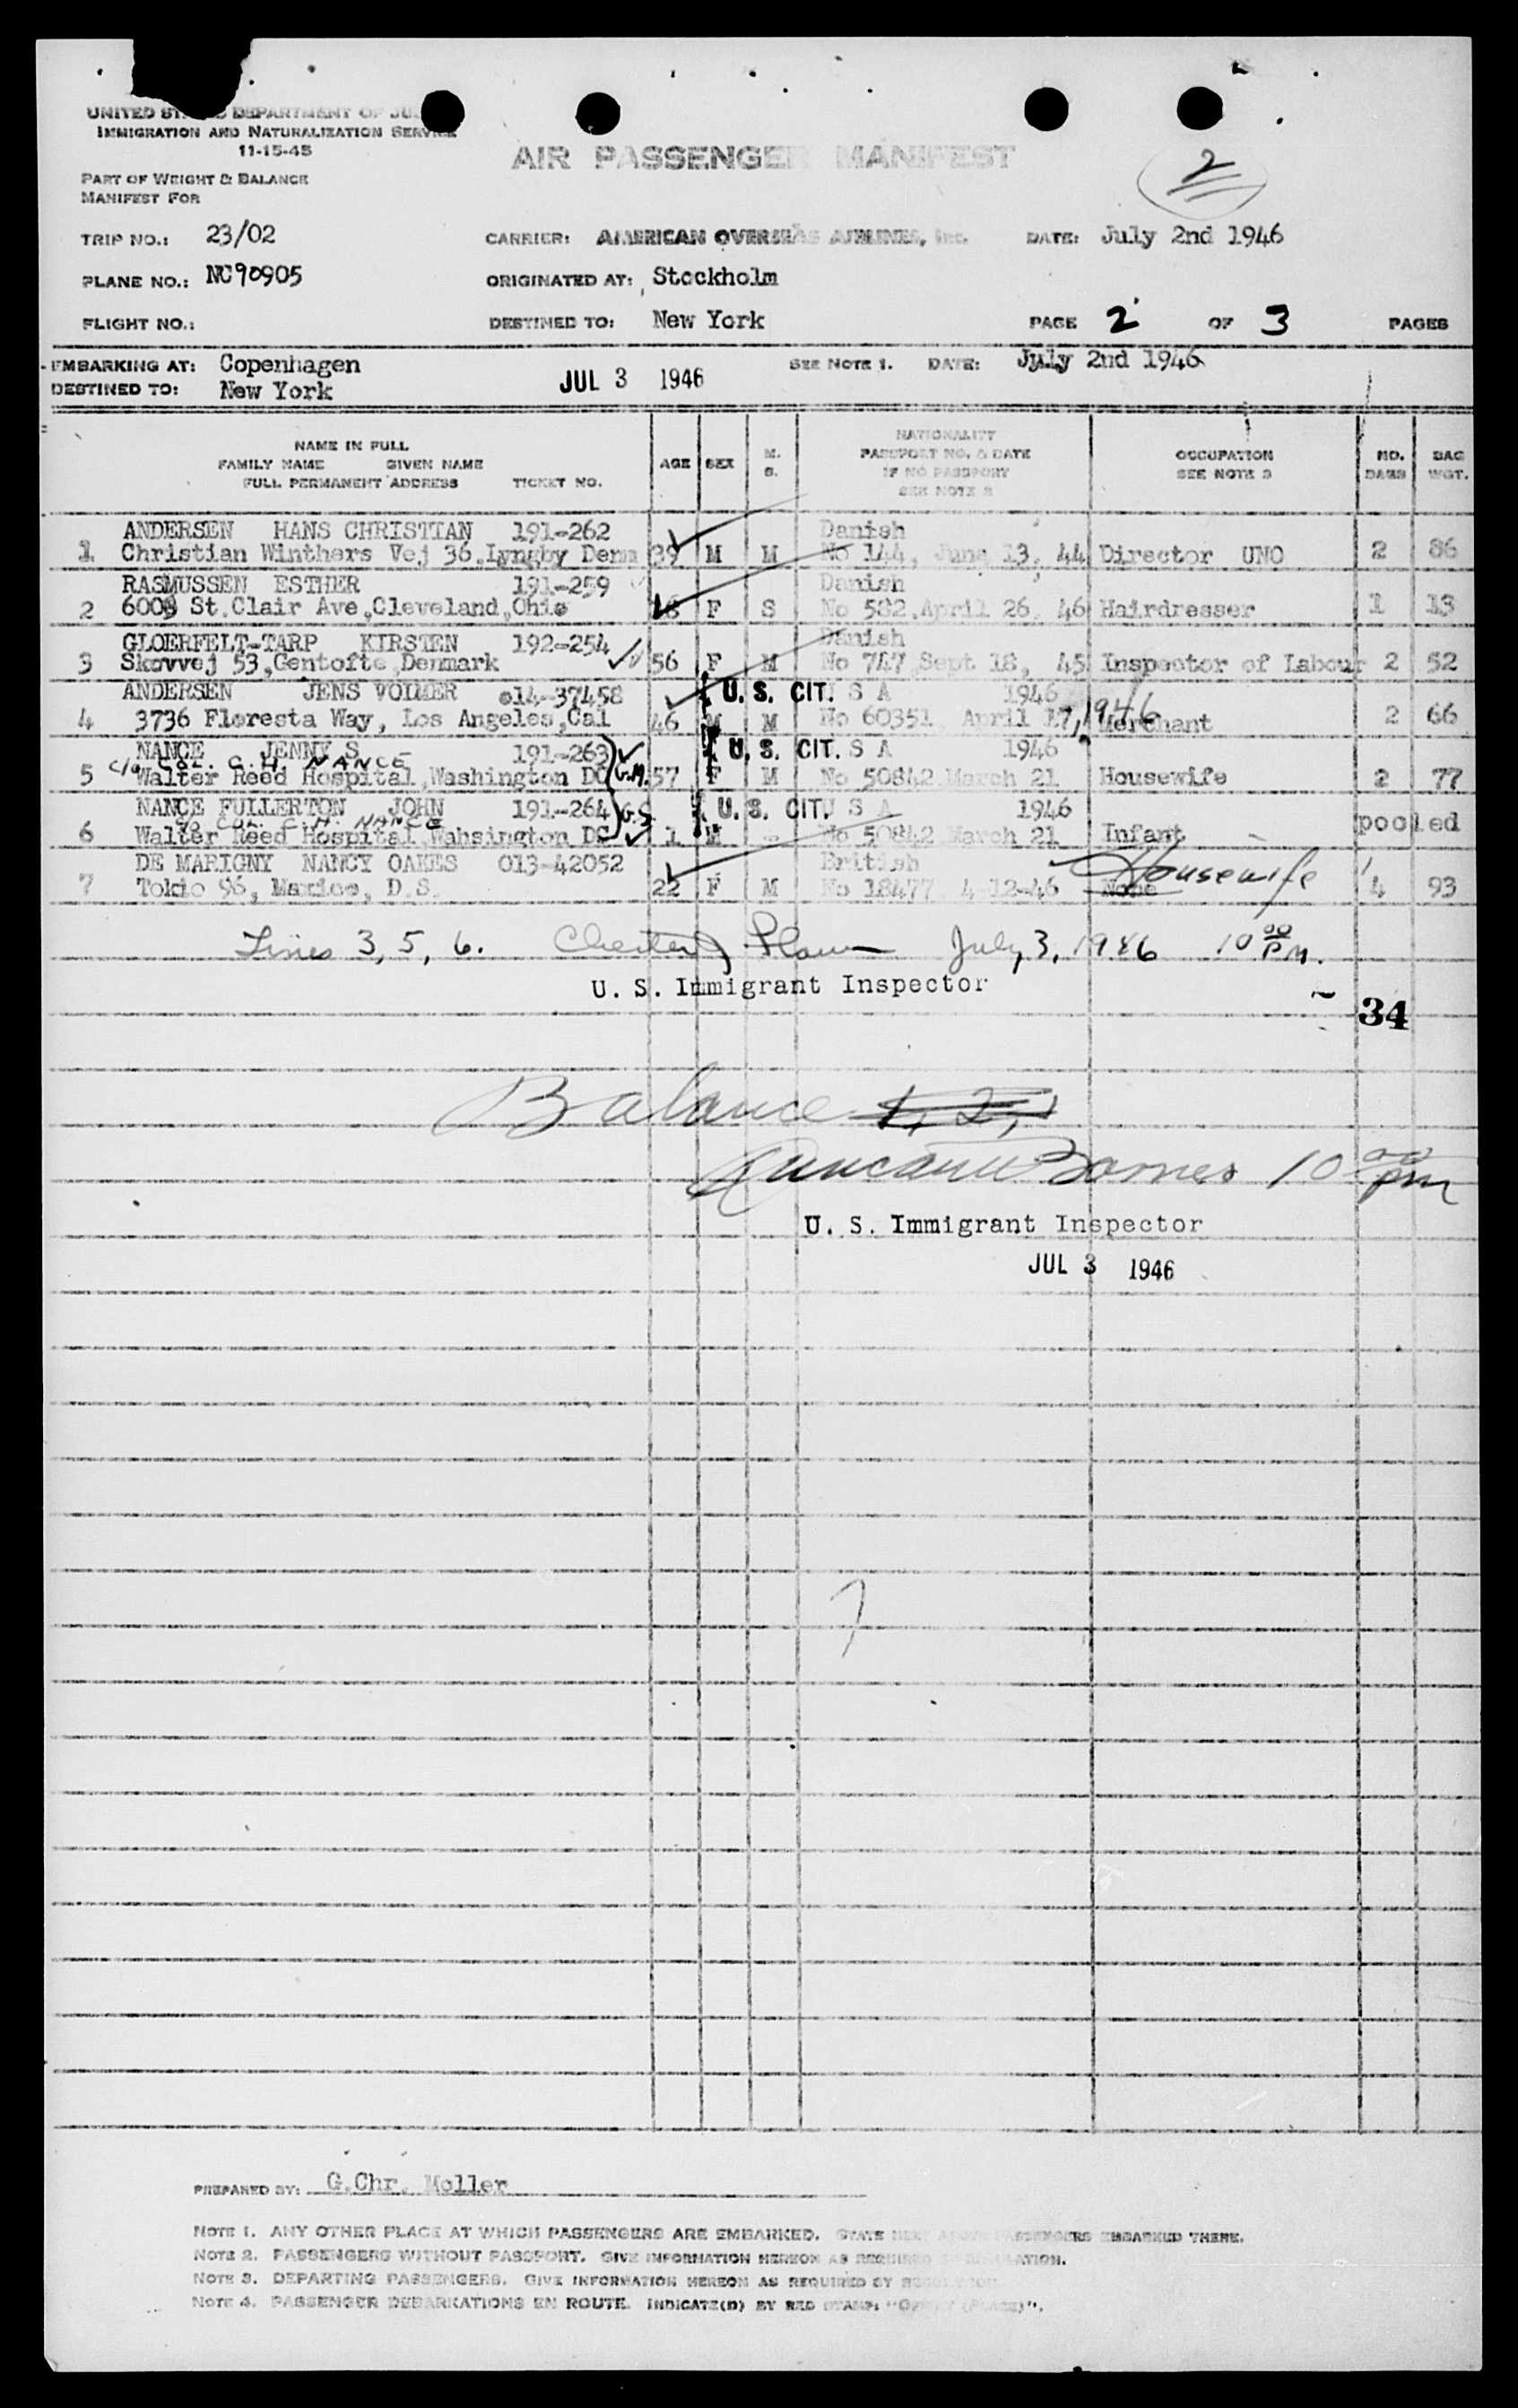 UNITED ST DEPARTMENT OF JU
IMMIGRATION AND NATURALIZATION SERVICE
11-15-45
AIR PASSENGER MANIFEST
2
PART OF WEIGHT & BALANCE
MANIFEST FOR
TRIP NO.: 23/02 CARRIER: AMERICAN OVERSEAS AIRLINES, Inc. DATE: July 2nd 1946
PLANE NO.: NC90905 ORIGINATED AT: Stockholm
FLIGHT NO.: DESTINED TO: New York PAGE 2 OF 3 PAGES
EMBARKING AT: Copenhagen SEE NOTE 1. DATE: July 2nd 1946
DESTINED TO: New York JUL 3 1946
NAME IN FULL
FAMILY NAME GIVEN NAME
FULL PERMANENT ADDRESS TICKET NO. AGE SEX M. S. NATIONALITY PASSPORT NO. & DATE IF NO PASSPORT SEE NOTE 2 OCCUPATION SEE NOTE 3 NO. BAGS BAG WGT.
ANDERSEN HANS CHRISTIAN 191-262 Danish
1 Christian Winthers Vej 36, Lyngby Denm 39 M M No 144, June 13, 44 Director UNO 2 86
RASMUSSEN ESTHER 191-259 Danish
2 6009 St.Clair Ave,Cleveland,Ohio F S No 582,April 26, 46 Hairdresser 1 13
GLOERFELT-TARP KIRSTEN 192-254 Danish
3 Skovvej 53,Gentofte,Denmark 56 F M No 747 Sept 18, 45 Inspector of Labour 2 52
ANDERSEN JENS VOLMER 014-37458 U. S. CIT. S A 1946
4 3736 Floresta Way, Los Angeles,Cal 46 M M No 60351 April 17, 1946 Merchant 2 66
NANCE JENNY S. 191-263 U. S. CIT. S A 1946
c/o COL. C. H. NANCE
5 Walter Reed Hospital,Washington DC G.M. 57 F M No 50842 March 21 Housewife 2 77
NANCE FULLERTON JOHN 191-264 G.S. U. S. CIT. U S A 1946
c/o COL. C. H. NANCE
6 Walter Reed Hospital Wahsington DC 1 M - No 50842 March 21 Infant - pooled
DE MARIGNY NANCY OAKES 013-42052 British Housewife
7 Tokio 96, Mexico, D.S. 22 F M No 18477 4-12-46 None 4 93
Lines 3, 5, 6. July 3, 1946 10 00 P.M.
U. S. Immigrant Inspector
34
Balance 1, 2,
Barnes 10 00 pm
U. S. Immigrant Inspector
JUL 3 1946
7
PREPARED BY: G.Chr. Moller
NOTE 1. ANY OTHER PLACE AT WHICH PASSENGERS ARE EMBARKED. STATE NEXT ABOVE PASSENGERS EMBARKED THERE.
NOTE 2. PASSENGERS WITHOUT PASSPORT. GIVE INFORMATION HEREON AS REQUIRED
NOTE 3. DEPARTING PASSENGERS. GIVE INFORMATION HEREON AS REQUIRED BY
NOTE 4. PASSENGER DEBARKATIONS EN ROUTE. INDICATE(D) BY RED STAMP: